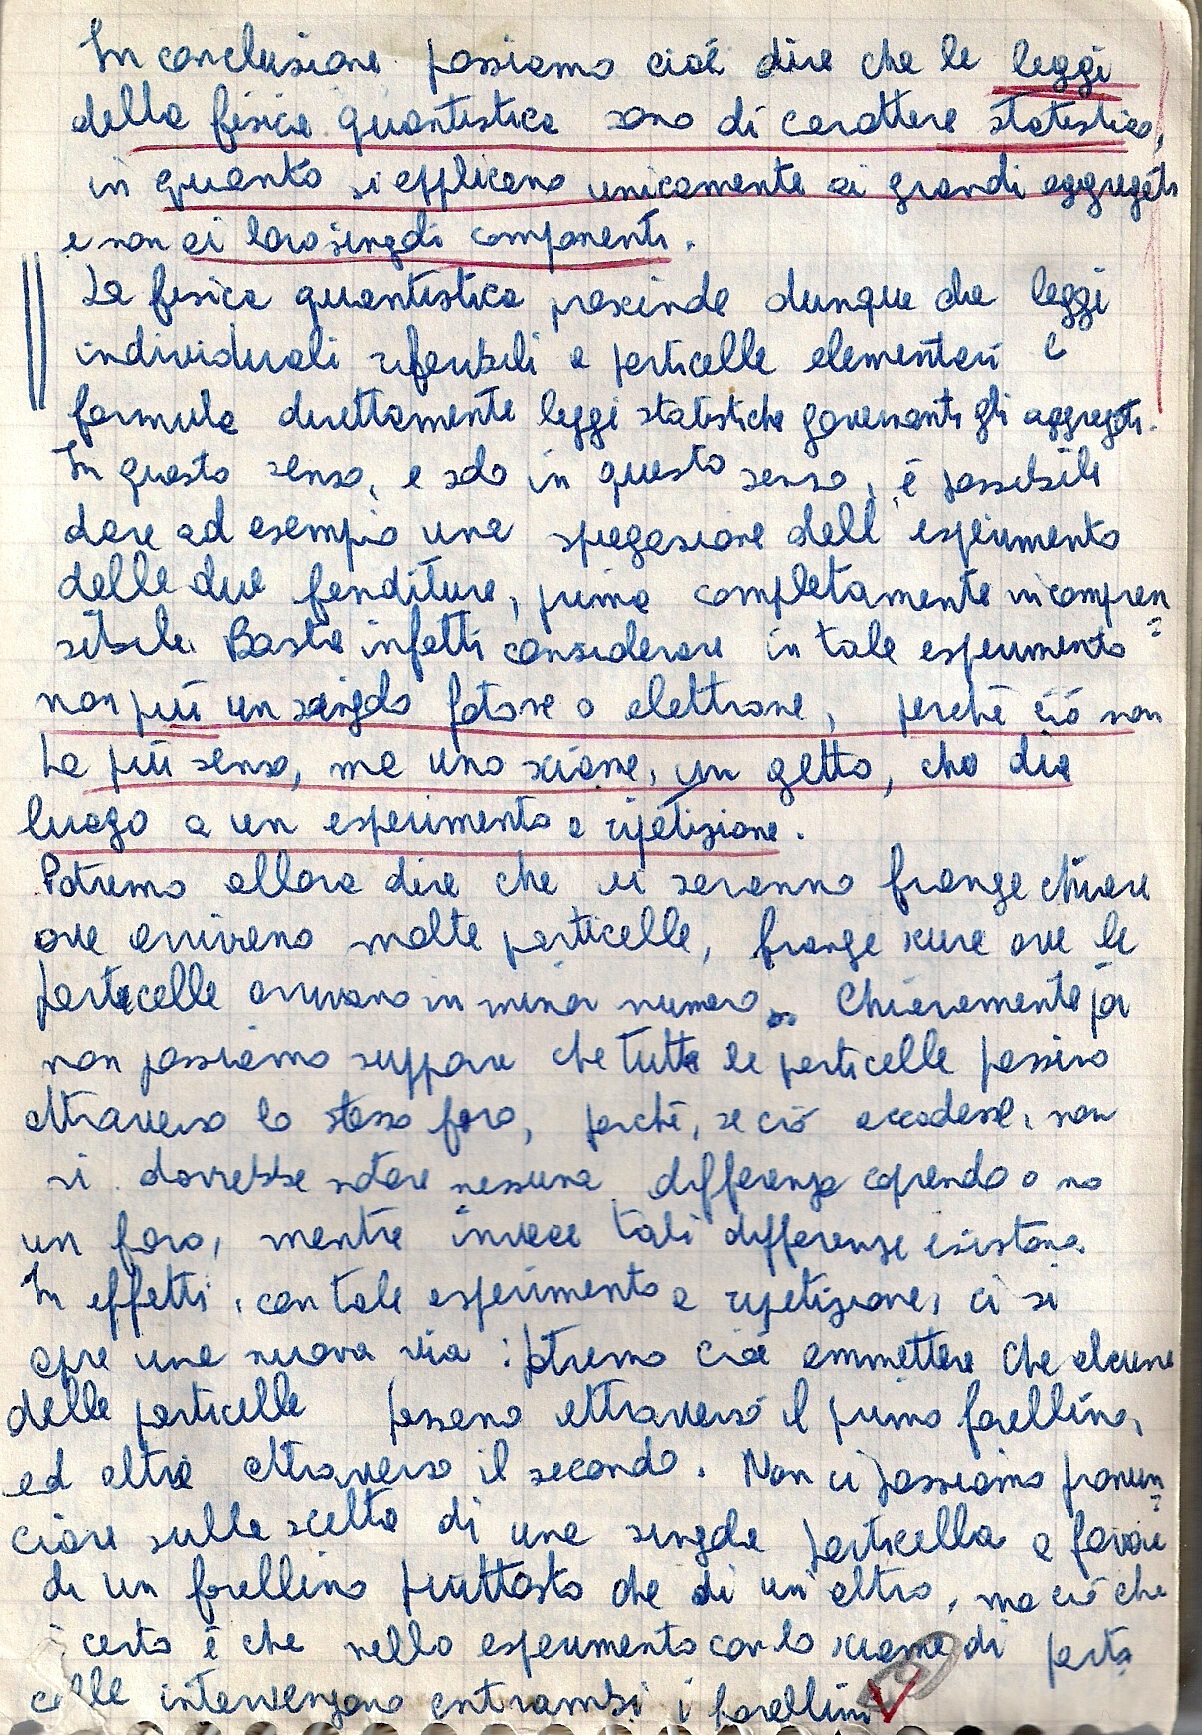 In conclusione possiamo cioè dire che le leggi
della fisica quantistica sono di carattere statistico,
in quanto si applicano unicamente ai grandi aggregati
e non ai loro singoli componenti.
La fisica quantistica prescinde dunque da leggi
individuali riferibili a particelle elementari e
formula direttamente leggi statistiche governanti gli aggregati.
In questo senso, e solo in questo senso, è possibile
dare ad esempio una spiegazione dell'esperimento
delle due fenditure, prima completamente incompren=
sibile. Basta infatti considerare in tale esperimento
non più un singolo fotone o elettrone, perché ciò non
ha più senso, ma uno sciame, un getto, che dia
luogo a un esperimento a ripetizione.
Potremo allora dire che vi saranno frange chiare
ove arrivano molte particelle, frange scure ove le
particelle arrivano in minor numero. Chiaramente poi
non possiamo supporre che tutte le particelle passino
attraverso lo stesso foro, perché, se ciò accadesse, non
si dovrebbe notare nessuna differenza coprendo o no
un foro, mentre invece tali differenze esistono.
In effetti, con tale esperimento a ripetizione, ci si
apre una nuova via: potremo cioè ammettere che alcune
delle particelle passano attraverso il primo forellino,
ed altre attraverso il secondo. Non ci possiamo pronun=
ciare sulla scelta di una singola particella a favore
di un forellino piuttosto che di un altro, ma ciò che
è certo è che nello esperimento con lo sciame di parti
celle intervengono entrambi i forellini